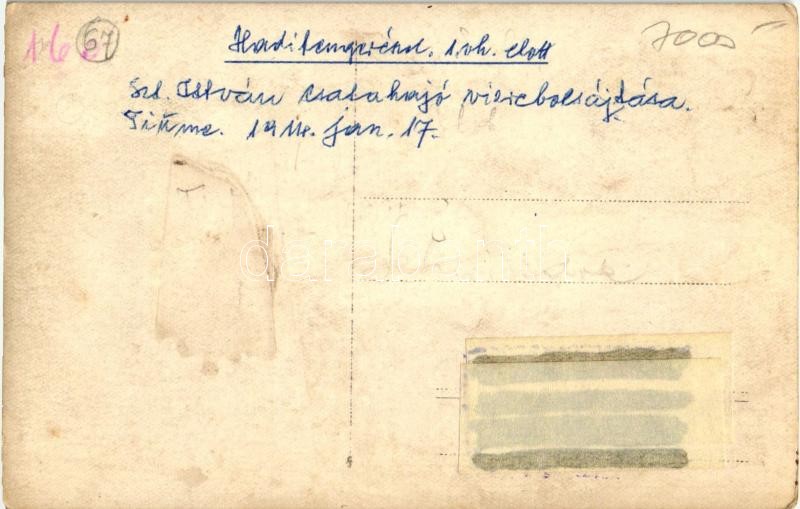 16 67 7000
Haditengerészd. I.vh. elott
Szt. István csatahajó vizrebocsájtása.
Fiume. 1914. jan. 17.
darabanth